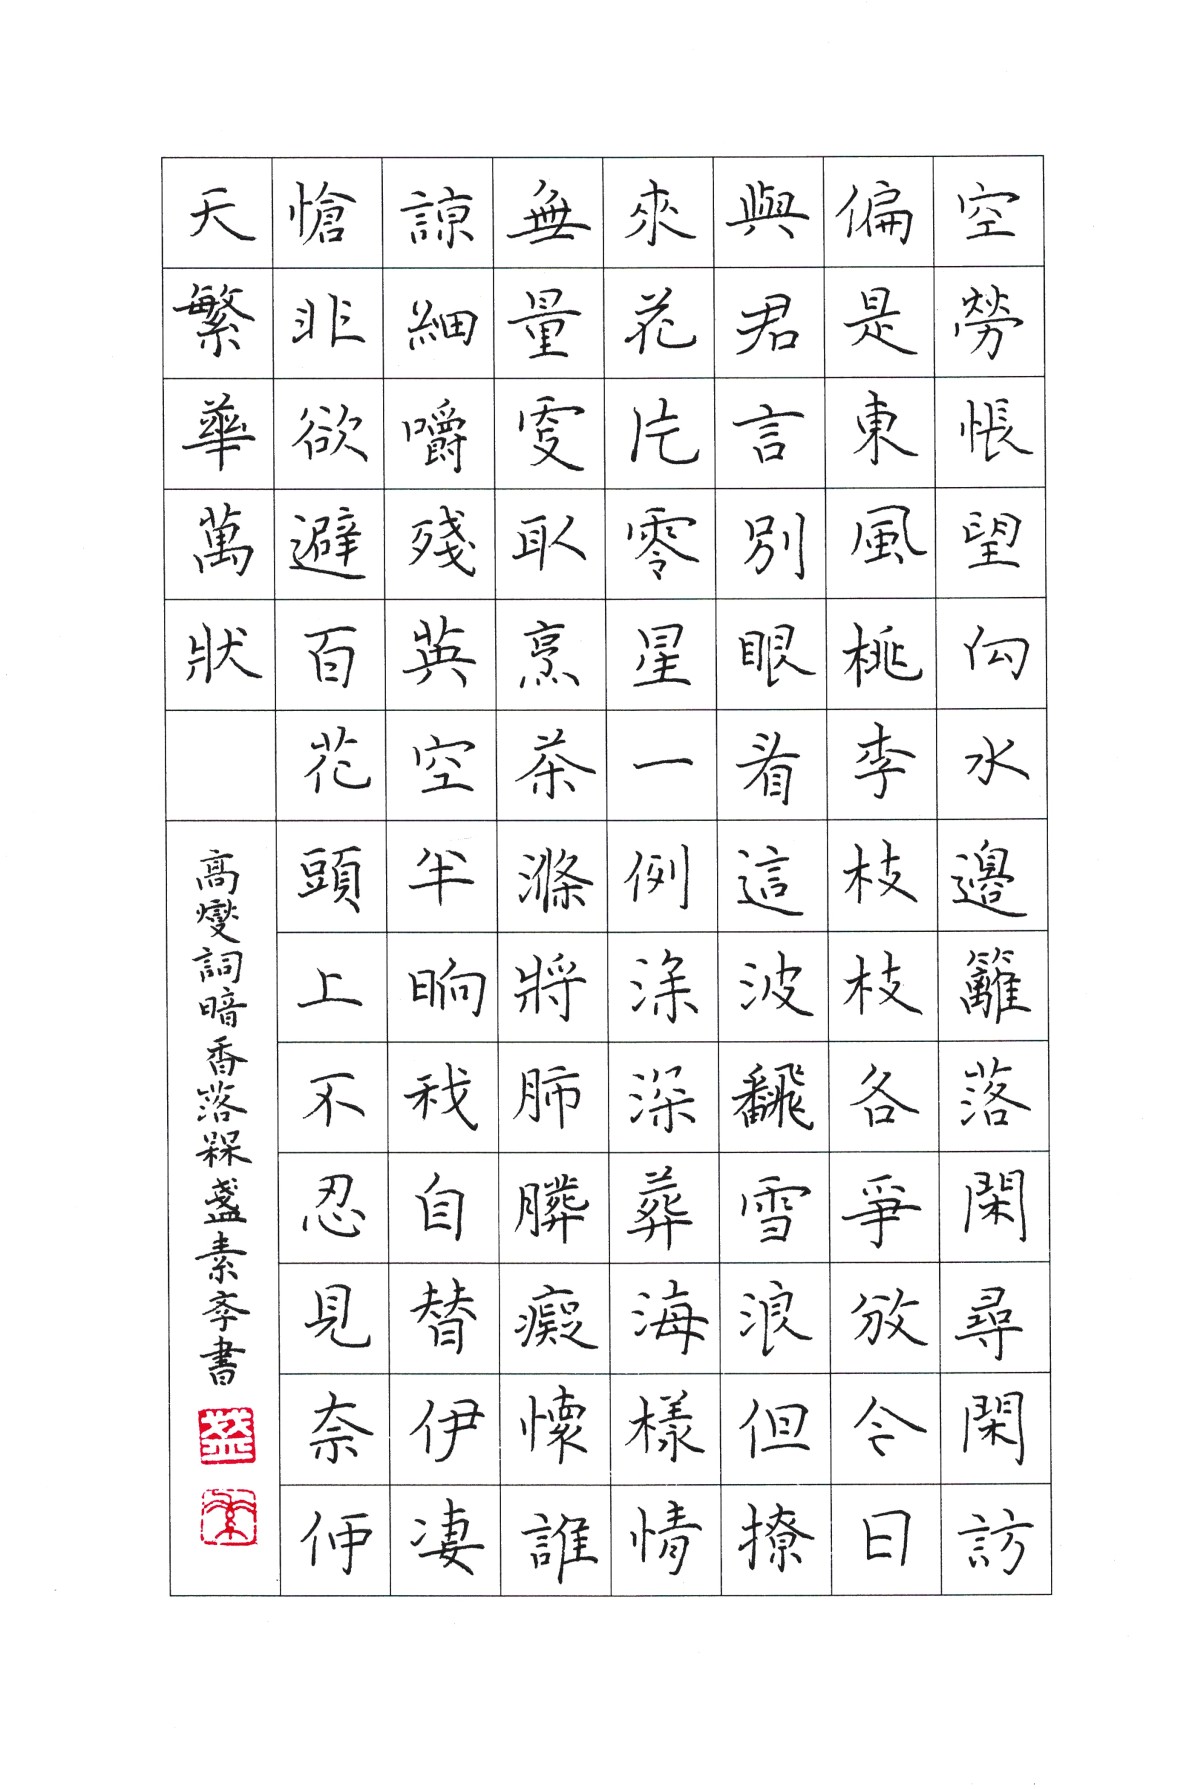 空勞悵望向水邊籬落閑尋閑訪
偏是東風桃李枝枝各爭放令日
與君言別眼看這波飜雪浪但撩
來花片零星一例涂深葬海樣情
無量變取烹茶滌將肺臟癡懷誰
諒細嚼殘英空半晌我自替伊淒
愴非欲避百花頭上不忍見奈何
天繁華萬狀
高燮詞暗香落槑盞素亭書